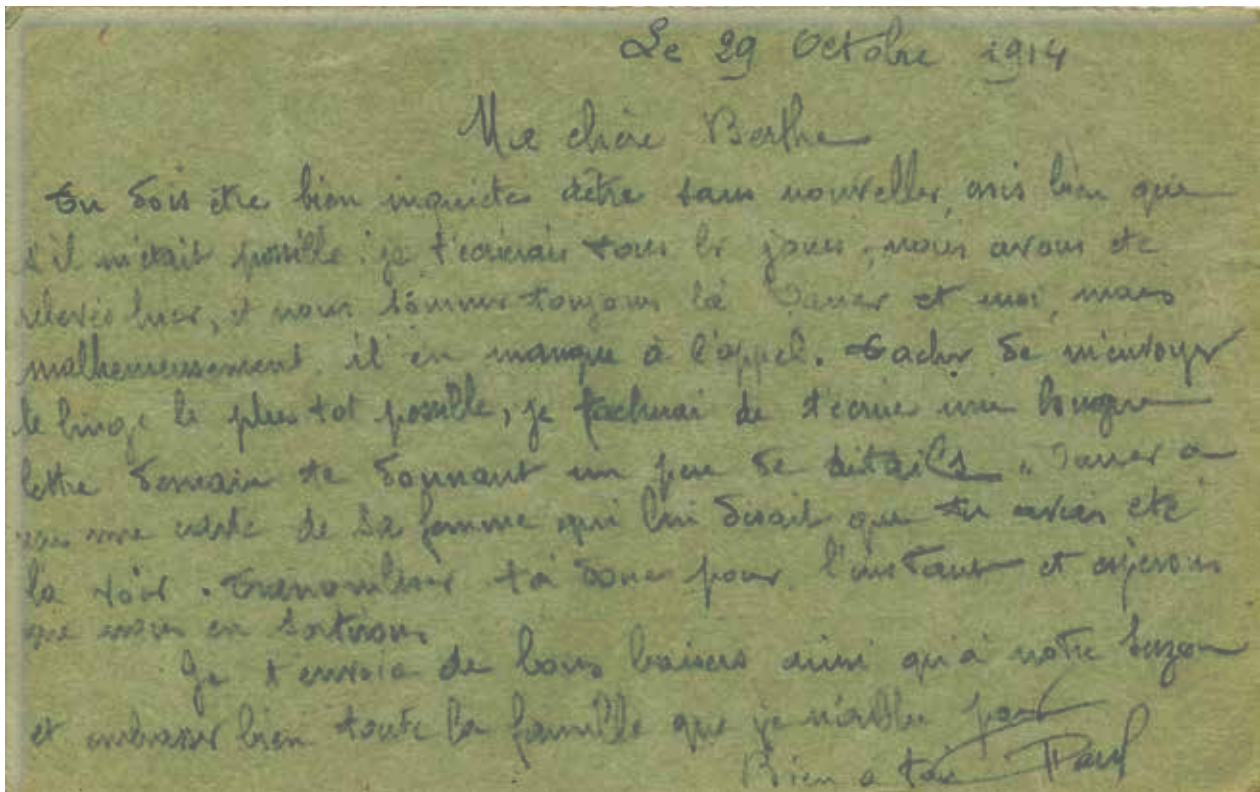 Le 29 Octobre 1914
Ma chère Berthe
Tu dois être bien inquiète d'être sans nouvelles, mais bien que
s'il m'était possible je t'écrirais tous les jours, nous avons été
relevés hier, et nous sommes toujours là et moi, mais
malheureusement il en manque à l'appel. Tacher de m'envoyer
le linge le plus tot possible, je tacherai de t'écrire une longue
lettre demain te donnant un peu de détails. a
une carte de sa femme qui lui disait que tu avais été
la voir. Tranquillise toi donc pour l'instant et espérons
que nous en sortirons
Je t'envoie de bons baisers ainsi qu'à notre Suzon
et embrasser bien toute la famille que je n'oublie pas
Bien a toi Paul